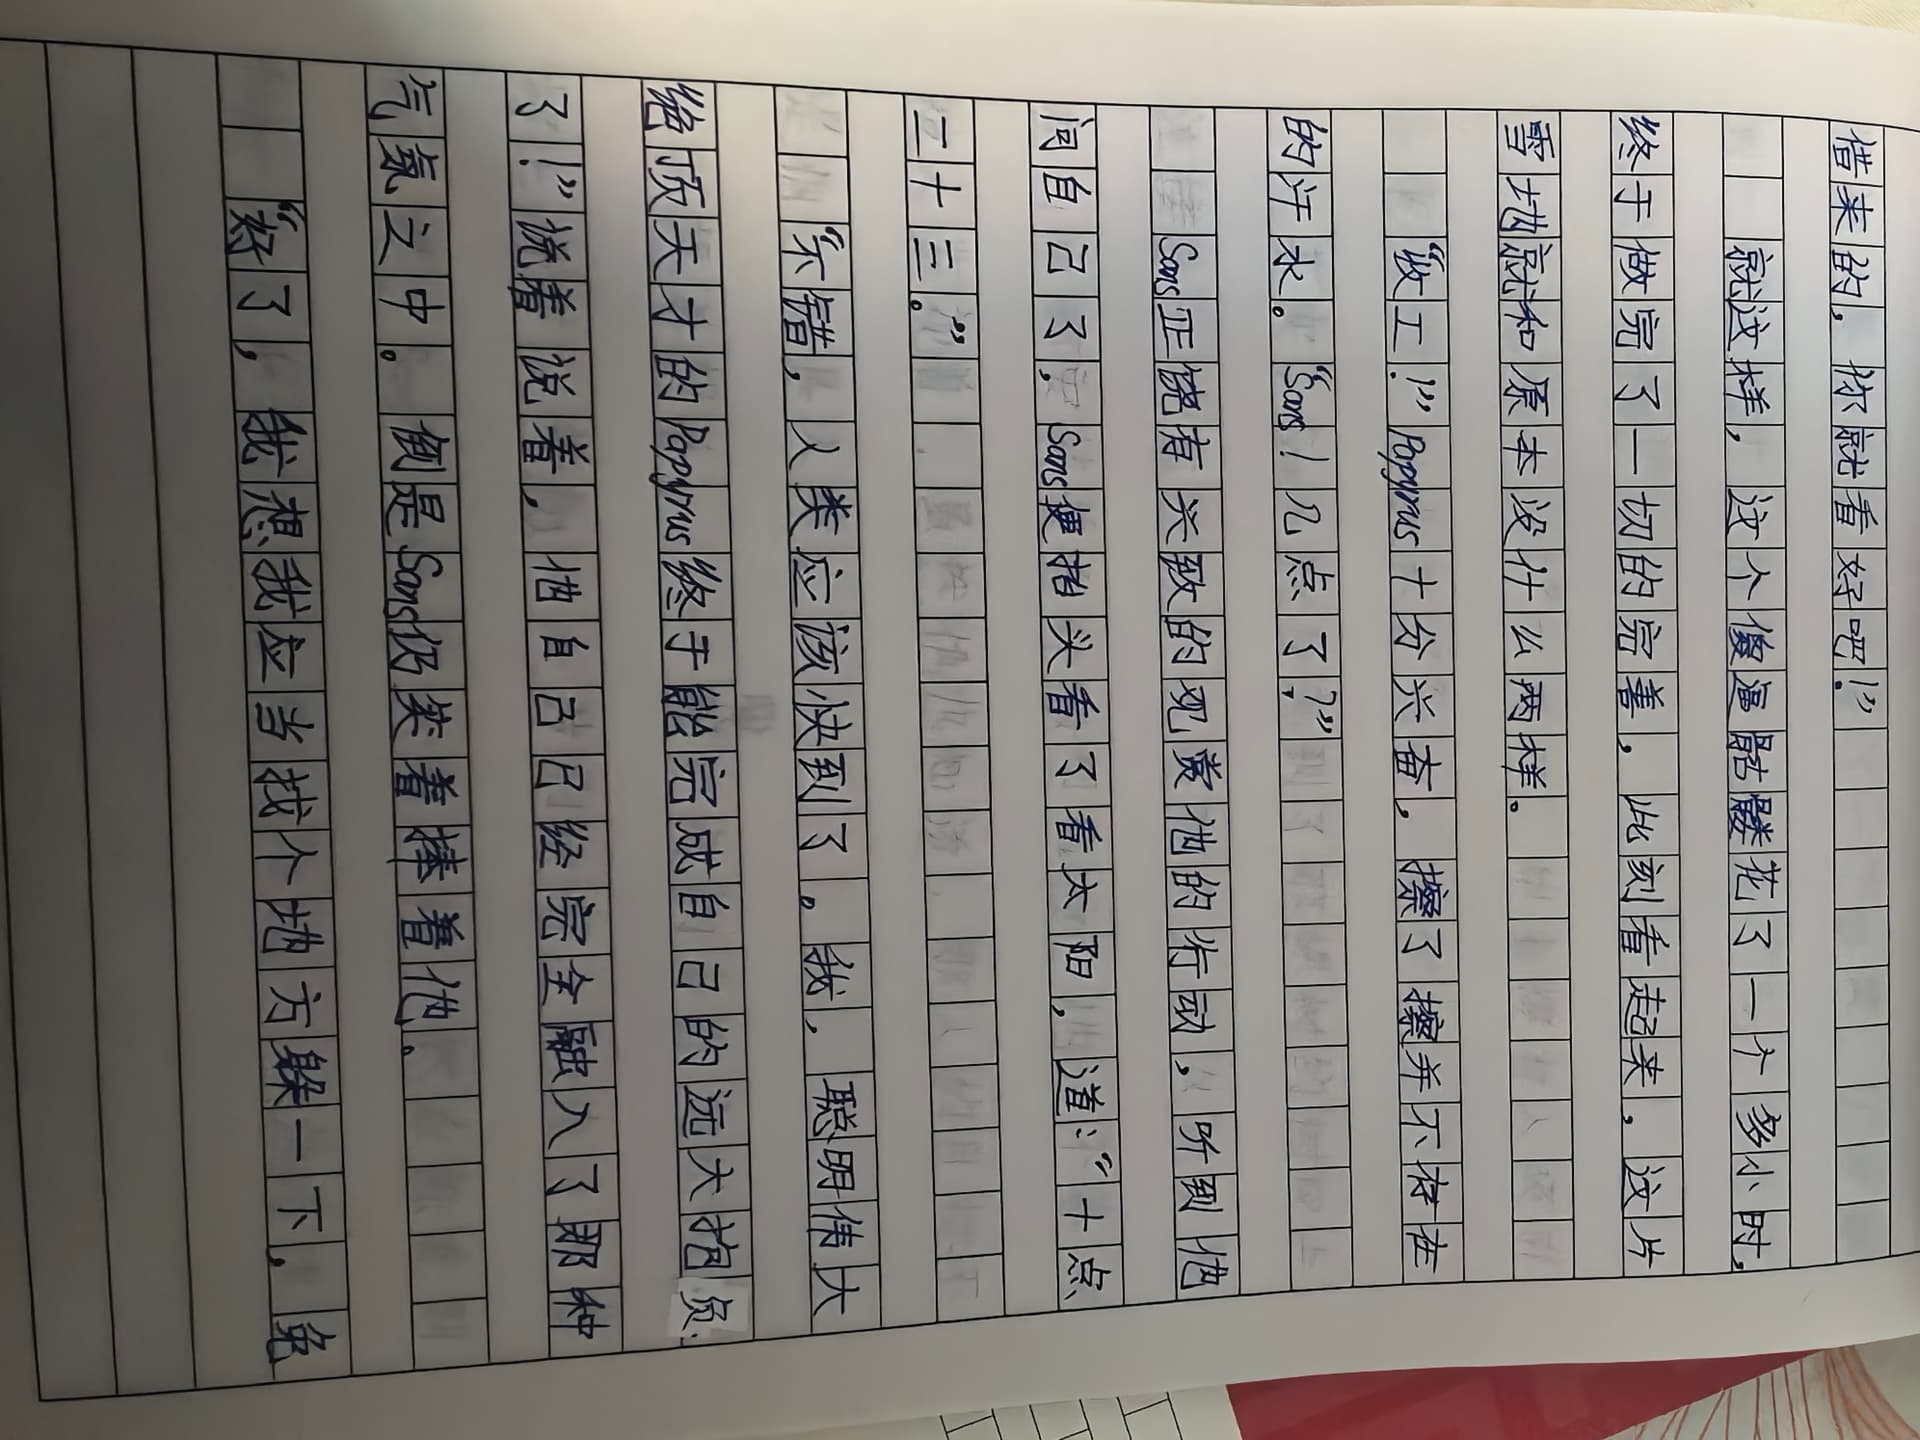 借来的，你就看好吧！”
就这样，这个傻逼骷髅花了一个多小时，
终于做完了一切的完善，此刻看起来，这片
雪地就和原本没什么两样。
“收工！”Papyrus十分兴奋，擦了擦并不存在
的汗水。“Sans！几点了？”
Sans正饶有兴致的观赏他的行动，听到他
问自己了，Sans便抬头看了看太阳，道：“十点
二十三。”
“不错，人类应该快到了。我，聪明伟大
绝顶天才的Papyrus终于能完成自己的远大抱负
了！”说着说着，他自己已经完全融入了那种
气氛之中。倒是Sans仍笑着捧着他。
“好了，我想我应当找个地方躲一下，免